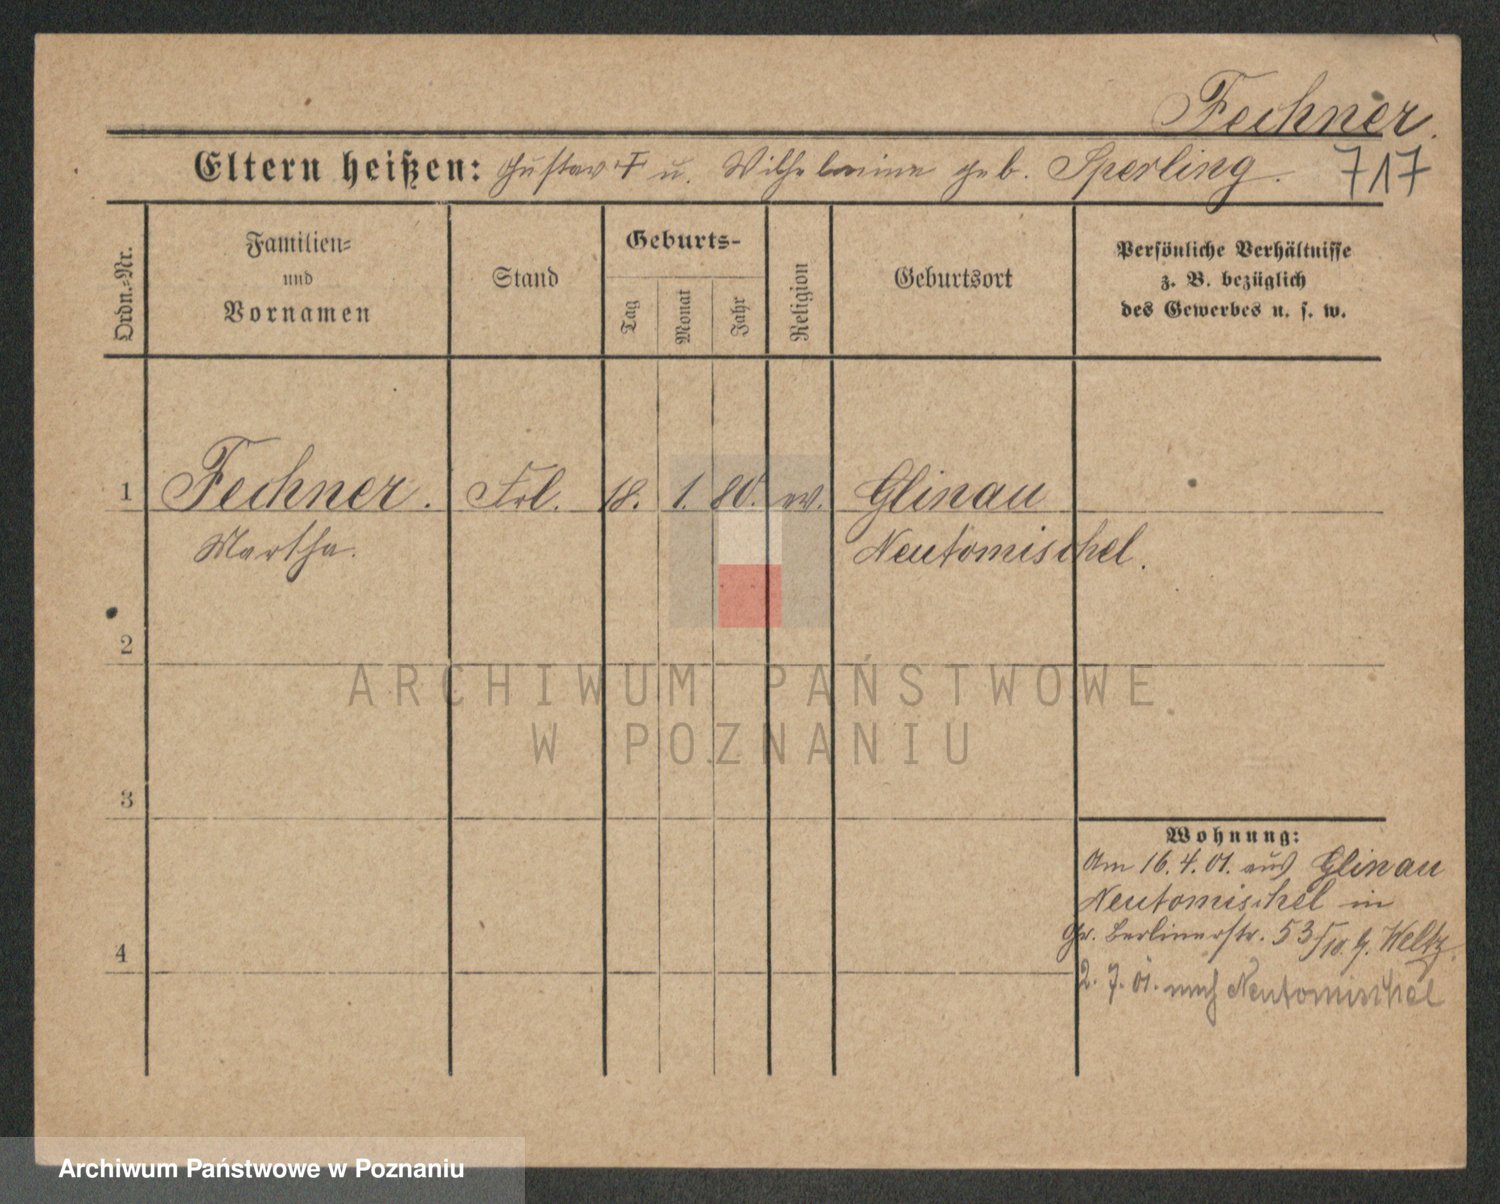 Fechner.
Eltern heißen: Gustav † u. Wilhelmine geb. Sperling.
717
Ordn.-Nr.
Familien-
und
Vornamen
Stand
Geburts-
Tag
Monat
Jahr
Religion
Geburtsort
Persönliche Verhältnisse
z. B. bezüglich
des Gewerbes u. s. w.
1 Fechner. Frl. 18. 1. 80. ev. Glinau
Martha. Neutomischel.
2
ARCHIWUM PAŃSTWOWE
W POZNANIU
3
Wohnung:
Am 16.4.01. aus Glinau
Neutomischel in
Gr. Berlinerstr. 53/10. b. Weltz.
4
2.7.01. nach Neutomischel
Archiwum Państwowe w Poznaniu